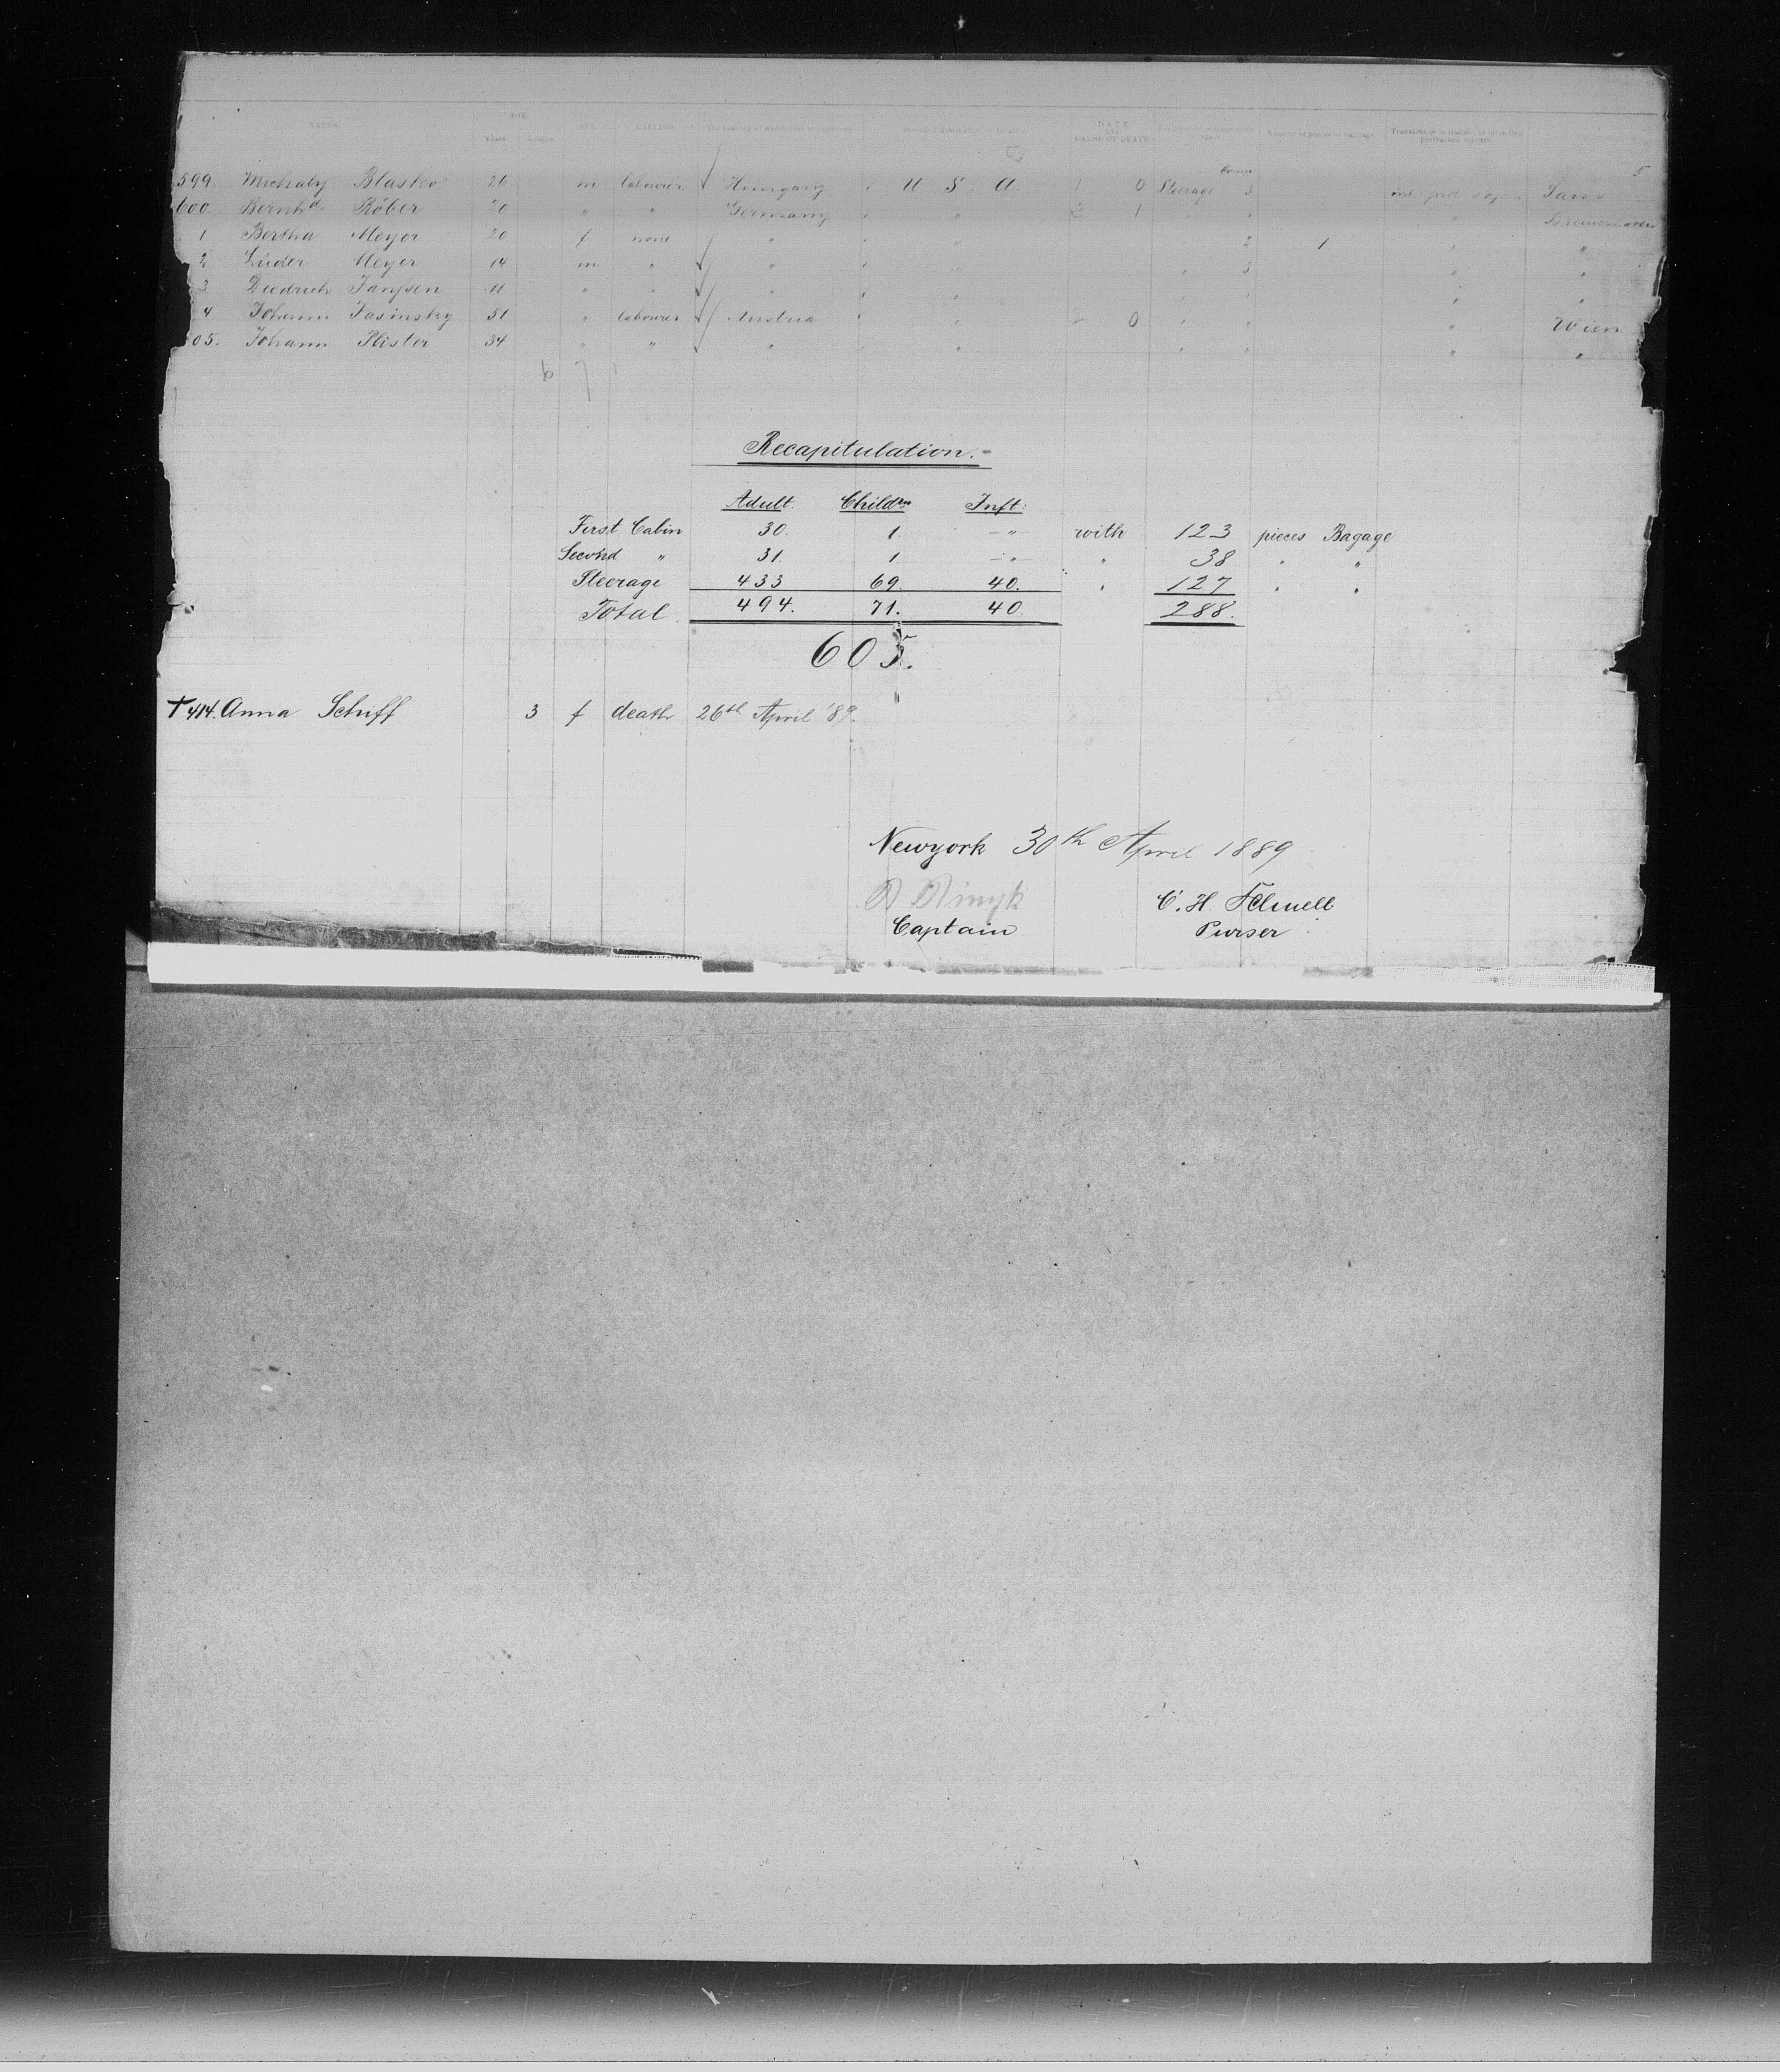 NAMES. AGE Years SEX CALLING DATE AND CAUSE OF DEATH
5
599. Michaly Blasko 26 m labourer Hungary U. S. A. 1 0 Steerage 3
600. Bernhd. Röber 20 " " Germany " 2 1 " " " Bremerhaven
1 Bertha Meyer 20 f none " " 2 1 " "
2 Lüder Meyer 14 m " " " " 3 " "
3 Diedrich Janssen 11 " " " " " " " "
4 Johann Jasinsky 51 " labourer Austria " 2 0 " " " Wien
605. Johann Plister 34 " " " " " " " "
6 7
Recapitulation.
Adult. Childrn Inft:
First Cabin 30. 1. — " — with 123 pieces Bagage
Second " 31. 1. — " " 38 " "
Steerage 433 69. 40. " 127 " "
Total. 494. 71. 40. 288.
605.
† 414. Anna Schiff 3 f death 26th April '89.
Newyork 30th April 1889
C. H.
Captain Purser